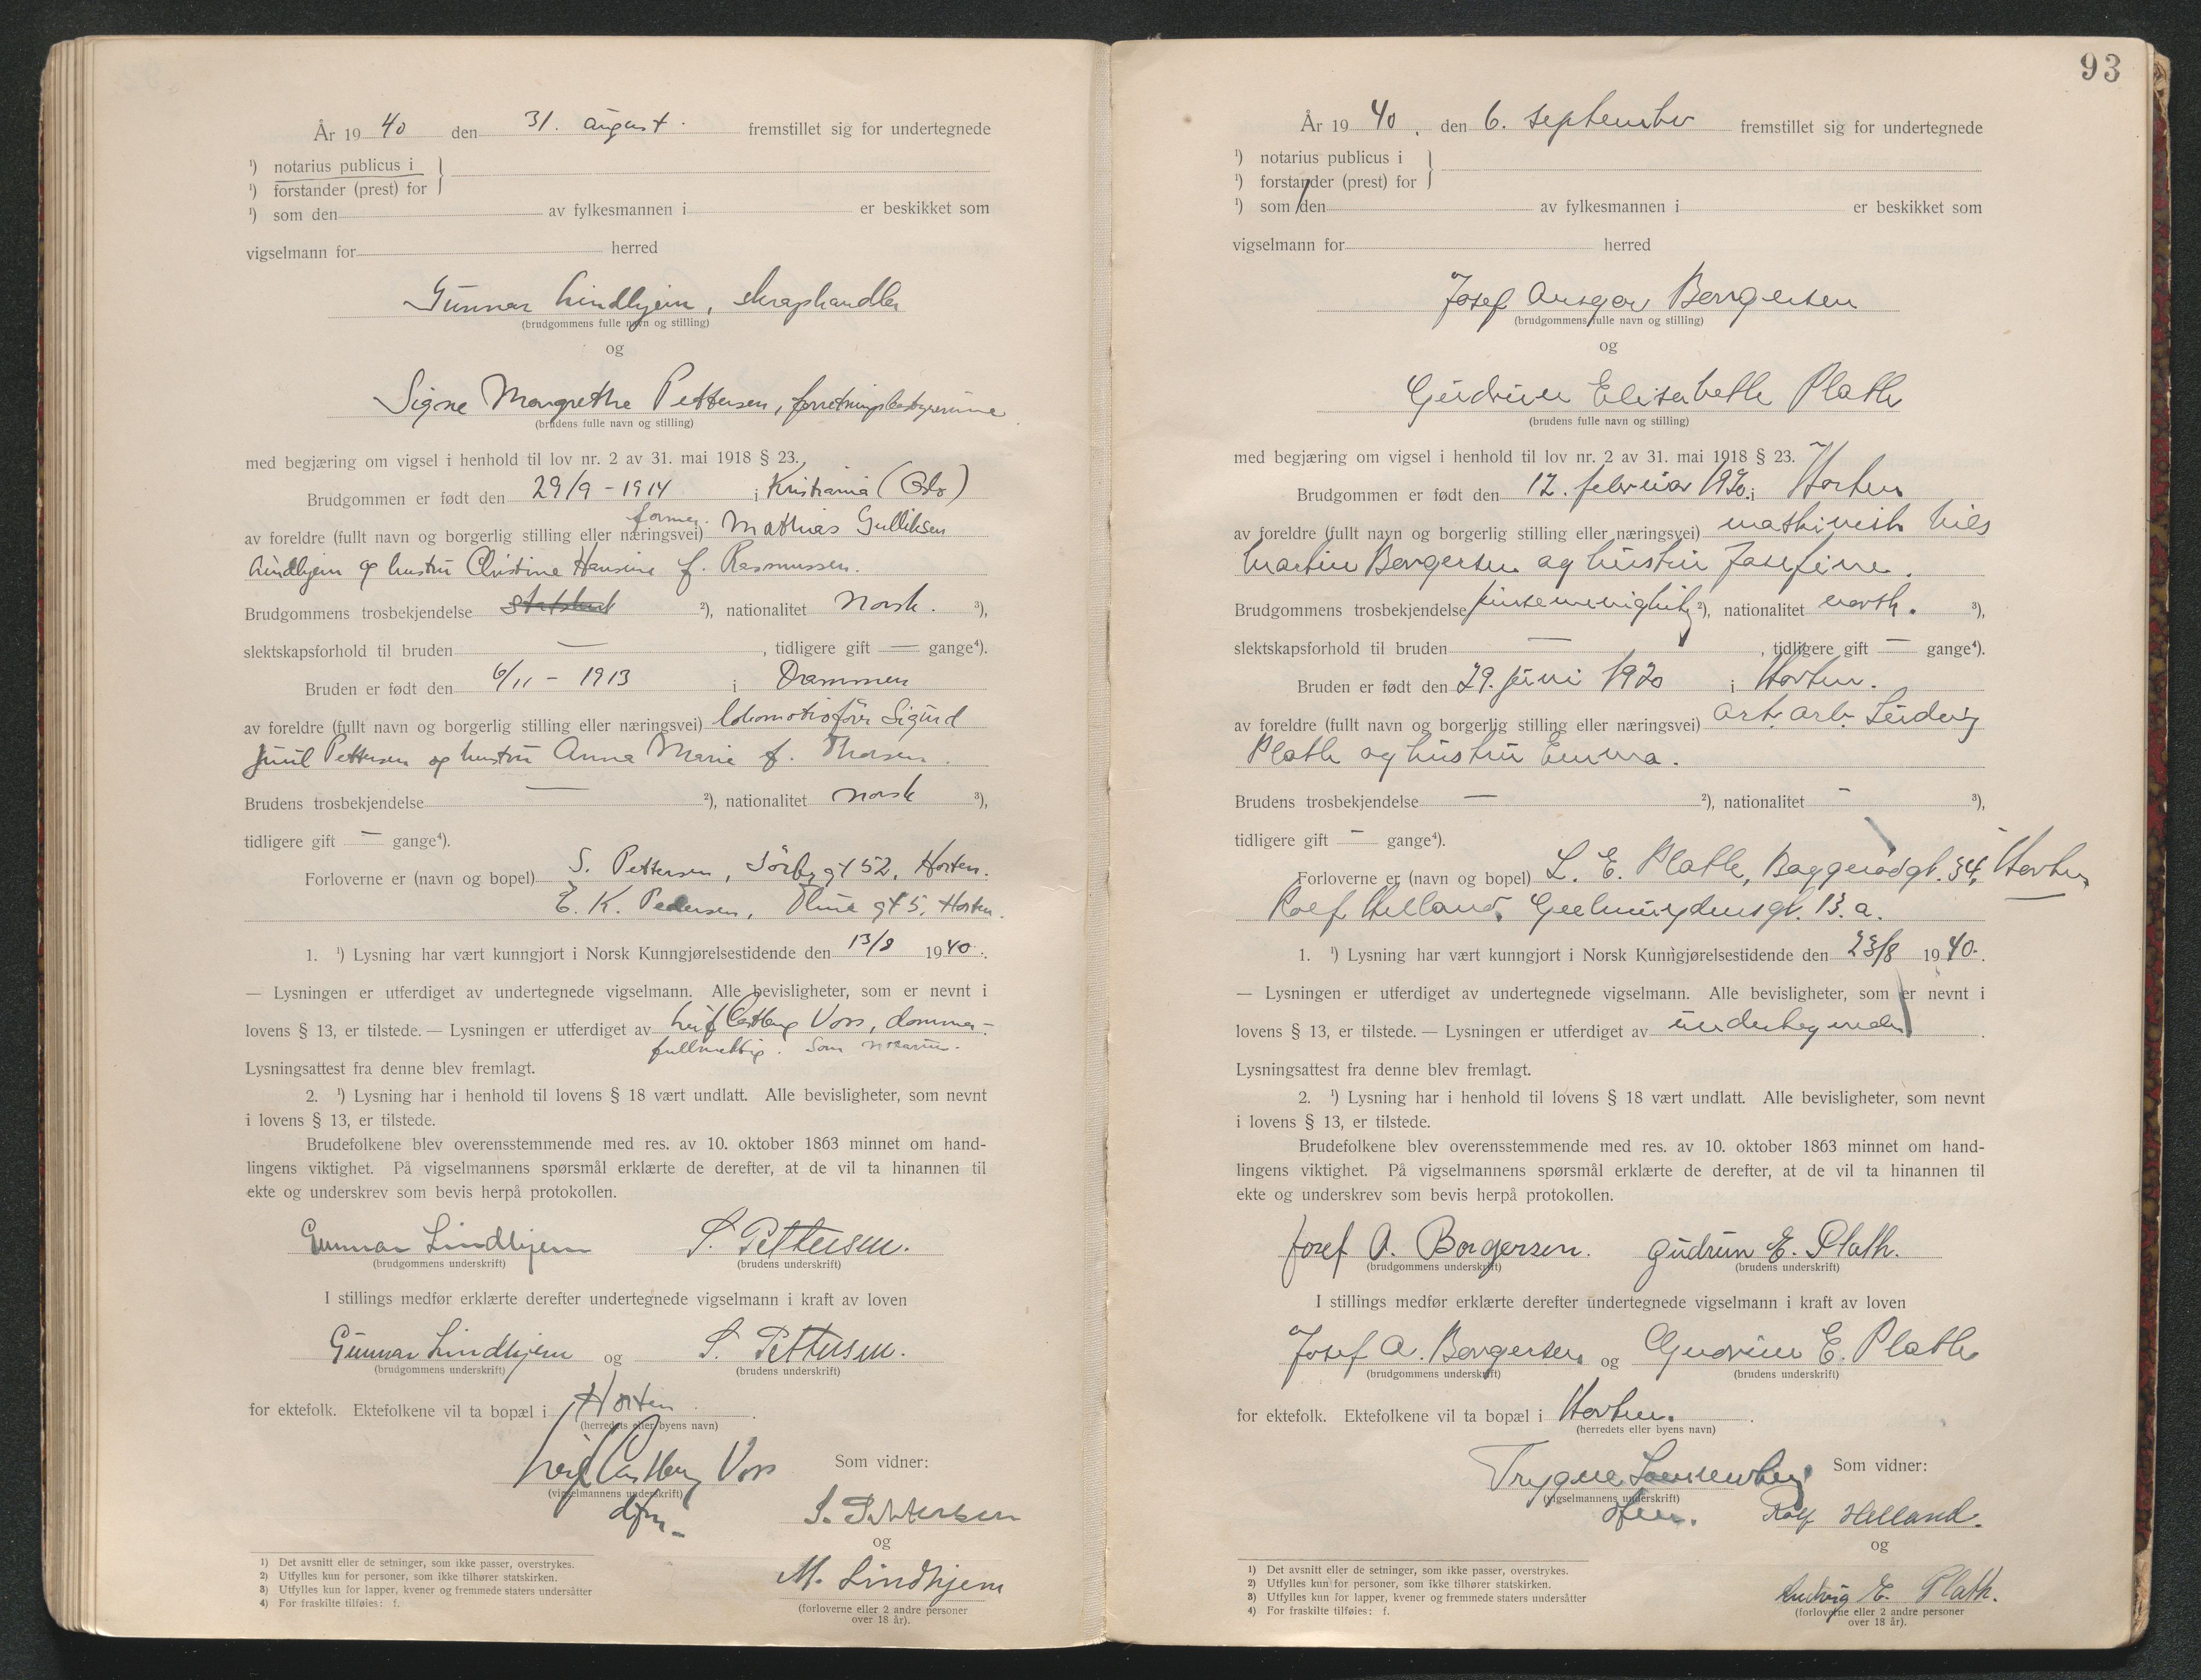 År 19 40 den 31. august. fremstillet sig for undertegnede
¹) notarius publicus i
¹) forstander (prest) for
¹) som den av fylkesmannen i er beskikket som
vigselmann for herred
Gunnar Lindhjem, skraphandler
(brudgommens fulle navn og stilling)
og
Signe Margrethe Pettersen, forretningsbestyrerinne
(brudens fulle navn og stilling)
med begjæring om vigsel i henhold til lov nr. 2 av 31. mai 1918 § 23.
Brudgommen er født den 29/9 - 1914 i Kristiania (Oslo)
av foreldre (fullt navn og borgerlig stilling eller næringsvei) Mathias Gulliksen
Lindhjem og hustru Christine Hansine f. Rasmussen.
Brudgommens trosbekjendelse statskirk ²), nationalitet norsk. ³),
slektskapsforhold til bruden — , tidligere gift — gange⁴).
Bruden er født den 6/11 - 1913 i Drammen
av foreldre (fullt navn og borgerlig stilling eller næringsvei) lokomotivfører Sigurd
Juul Pettersen og hustru Anna Marie f. Thorsen.
Brudens trosbekjendelse — ²), nationalitet norsk ³),
tidligere gift — gange⁴).
Forloverne er (navn og bopel) S. Pettersen, Sørbygt 52, Horten.
E. K. Pedersen, gt 5, Horten.
1. ¹) Lysning har vært kunngjort i Norsk Kunngjørelsestidende den 13/8 1940.
— Lysningen er utferdiget av undertegnede vigselmann. Alle bevisligheter, som er nevnt i
lovens § 13, er tilstede. — Lysningen er utferdiget av Leif Castberg Voss, dommer-
fullmektig. som notarius.
Lysningsattest fra denne blev fremlagt.
2. ¹) Lysning har i henhold til lovens § 18 vært undlatt. Alle bevisligheter, som nevnt
i lovens § 13, er tilstede.
Brudefolkene blev overensstemmende med res. av 10. oktober 1863 minnet om hand-
lingens viktighet. På vigselmannens spørsmål erklærte de derefter, at de vil ta hinannen til
ekte og underskrev som bevis herpå protokollen.
Gunnar Lindhjem S. Pettersen.
(brudgommens underskrift) (brudens underskrift)
I stillings medfør erklærte derefter undertegnede vigselmann i kraft av loven
Gunnar Lindhjem og S. Pettersen.
(brudgommens underskrift) (brudens underskrift)
for ektefolk. Ektefolkene vil ta bopæl i Horten.
(herredets eller byens navn)
Leif Castberg Voss Som vidner:
(vigselmannens underskrift)
dfm.
S. Pettersen
og
M. Lindhjem
(forloverne eller 2 andre personer
over 18 år).
1) Det avsnitt eller de setninger, som ikke passer, overstrykes.
2) Utfylles kun for personer, som ikke tilhører statskirken.
3) Utfylles kun for lapper, kvener og fremmede staters undersåtter
4) For fraskilte tilføies: f.
93
År 19 40, den 6. september fremstillet sig for undertegnede
¹) notarius publicus i
¹) forstander (prest) for
¹) som den av fylkesmannen i er beskikket som
vigselmann for herred
Josef Ansgar Borgersen
(brudgommens fulle navn og stilling)
og
Gudrun Elisabeth Plath
(brudens fulle navn og stilling)
med begjæring om vigsel i henhold til lov nr. 2 av 31. mai 1918 § 23.
Brudgommen er født den 12. februar 1920. i Horten
av foreldre (fullt navn og borgerlig stilling eller næringsvei) maskinist Nils
Martin Borgersen og hustru Josefine.
Brudgommens trosbekjendelse pinsemenighet ²), nationalitet norsk. ³),
slektskapsforhold til bruden — , tidligere gift — gange⁴).
Bruden er født den 29. juni 1920 i Horten.
av foreldre (fullt navn og borgerlig stilling eller næringsvei) arb. Ludvig
Plath og hustru Emma.
Brudens trosbekjendelse — ²), nationalitet — ³),
tidligere gift — gange⁴).
Forloverne er (navn og bopel) L. E. Plath, Baggerødgt. 34, Horten
Rolf Helland, Geelmuydensgt. 13. a.
1. ¹) Lysning har vært kunngjort i Norsk Kunngjørelsestidende den 23/8 1940.
— Lysningen er utferdiget av undertegnede vigselmann. Alle bevisligheter, som er nevnt i
lovens § 13, er tilstede. — Lysningen er utferdiget av undertegnede.
Lysningsattest fra denne blev fremlagt.
2. ¹) Lysning har i henhold til lovens § 18 vært undlatt. Alle bevisligheter, som nevnt
i lovens § 13, er tilstede.
Brudefolkene blev overensstemmende med res. av 10. oktober 1863 minnet om hand-
lingens viktighet. På vigselmannens spørsmål erklærte de derefter, at de vil ta hinannen til
ekte og underskrev som bevis herpå protokollen.
Josef A. Borgersen. Gudrun E. Plath.
(brudgommens underskrift) (brudens underskrift)
I stillings medfør erklærte derefter undertegnede vigselmann i kraft av loven
Josef A. Borgersen og Gudrun E. Plath
(brudgommens underskrift) (brudens underskrift)
for ektefolk. Ektefolkene vil ta bopæl i Horten.
(herredets eller byens navn)
Trygve Som vidner:
(vigselmannens underskrift)
Rolf Helland.
og
Ludvig E. Plath.
(forloverne eller 2 andre personer
over 18 år).
1) Det avsnitt eller de setninger, som ikke passer, overstrykes.
2) Utfylles kun for personer, som ikke tilhører statskirken.
3) Utfylles kun for lapper, kvener og fremmede staters undersåtter
4) For fraskilte tilføies: f.